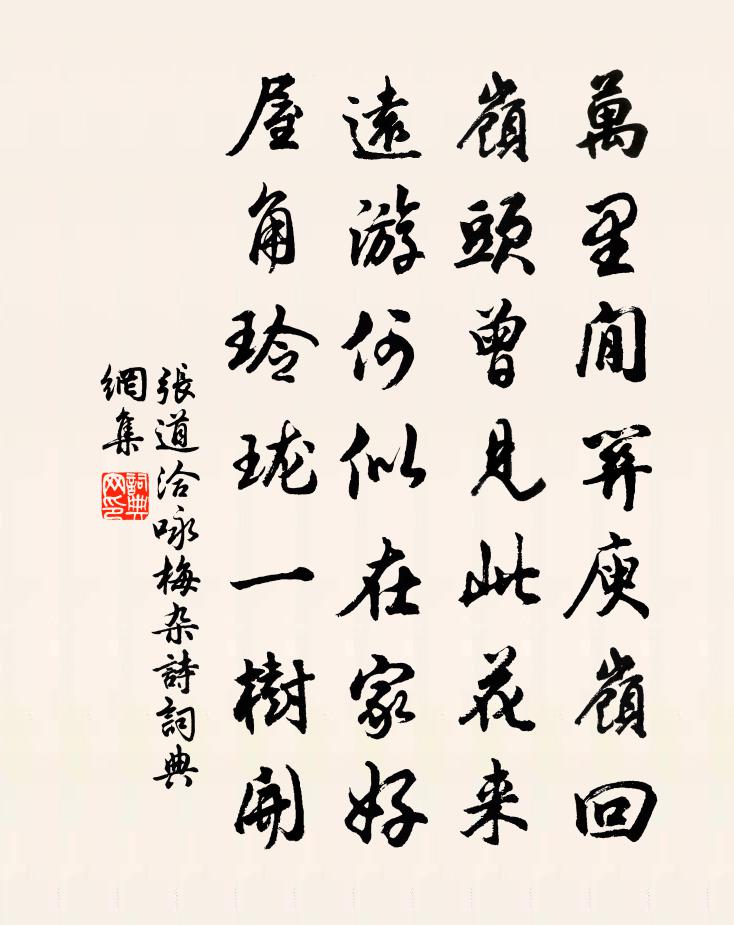 萬里間關庾嶺回
嶺頭曾見此花来
遠游何似在家好
屋角玲珑一樹開
張道洽咏梅杂詩詞典
網集
詞典
网印